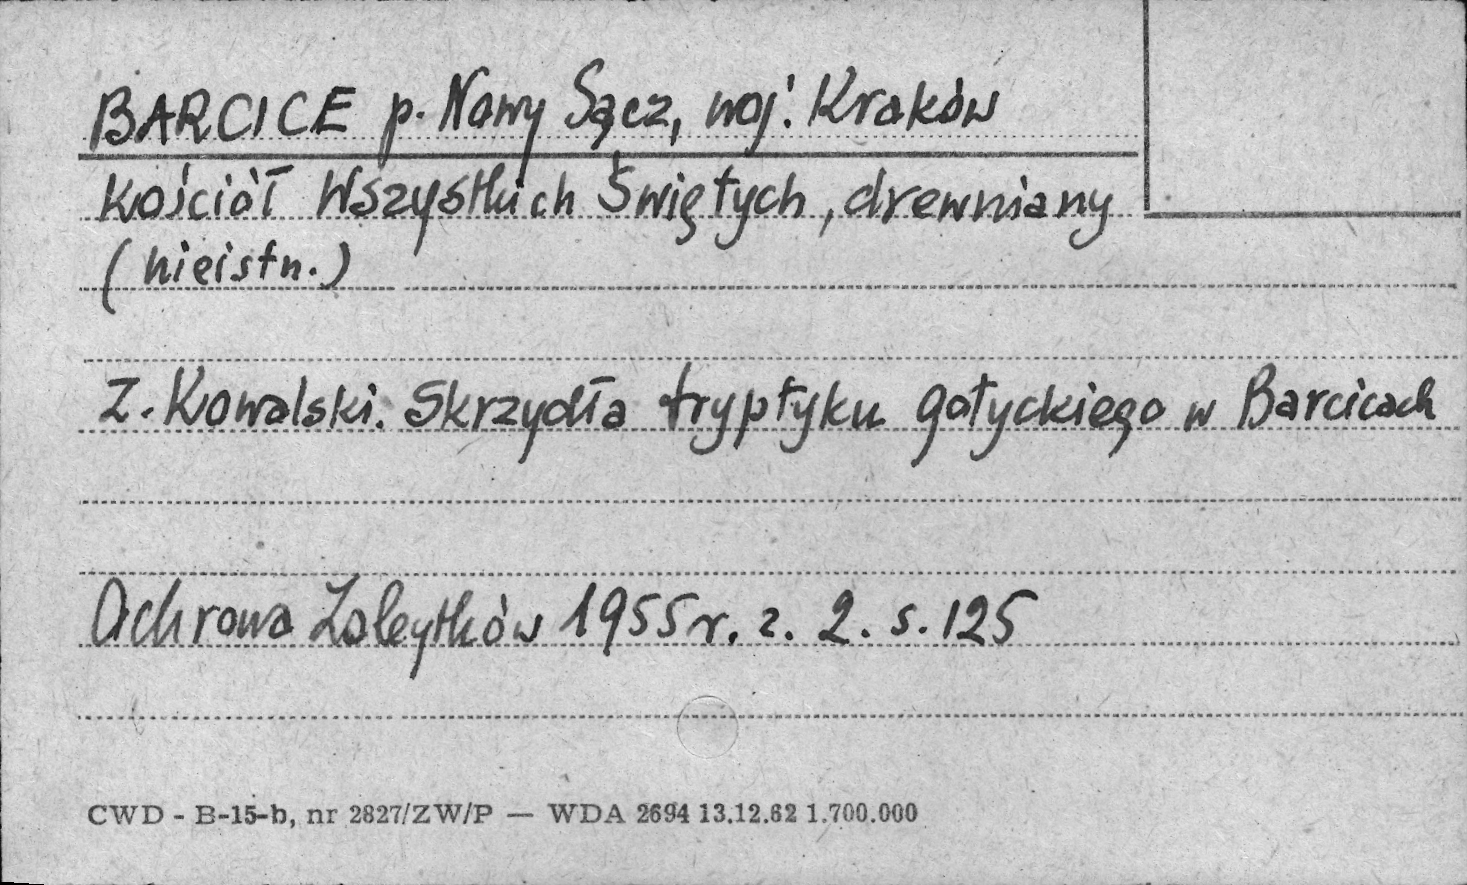 BARCICE p. Nowy Sącz, woj. Kraków
Kościół Wszystkich Świętych, drewniany
(nieistn.)
Z. Kowalski. Skrzydła tryptyku gotyckiego w Barcicach
Ochrona Zabytków 1955 r. z. 2. s. 125
CWD - B-15-b, nr 2827/ZW/P — WDA 2694 13.12.62 1.700.000